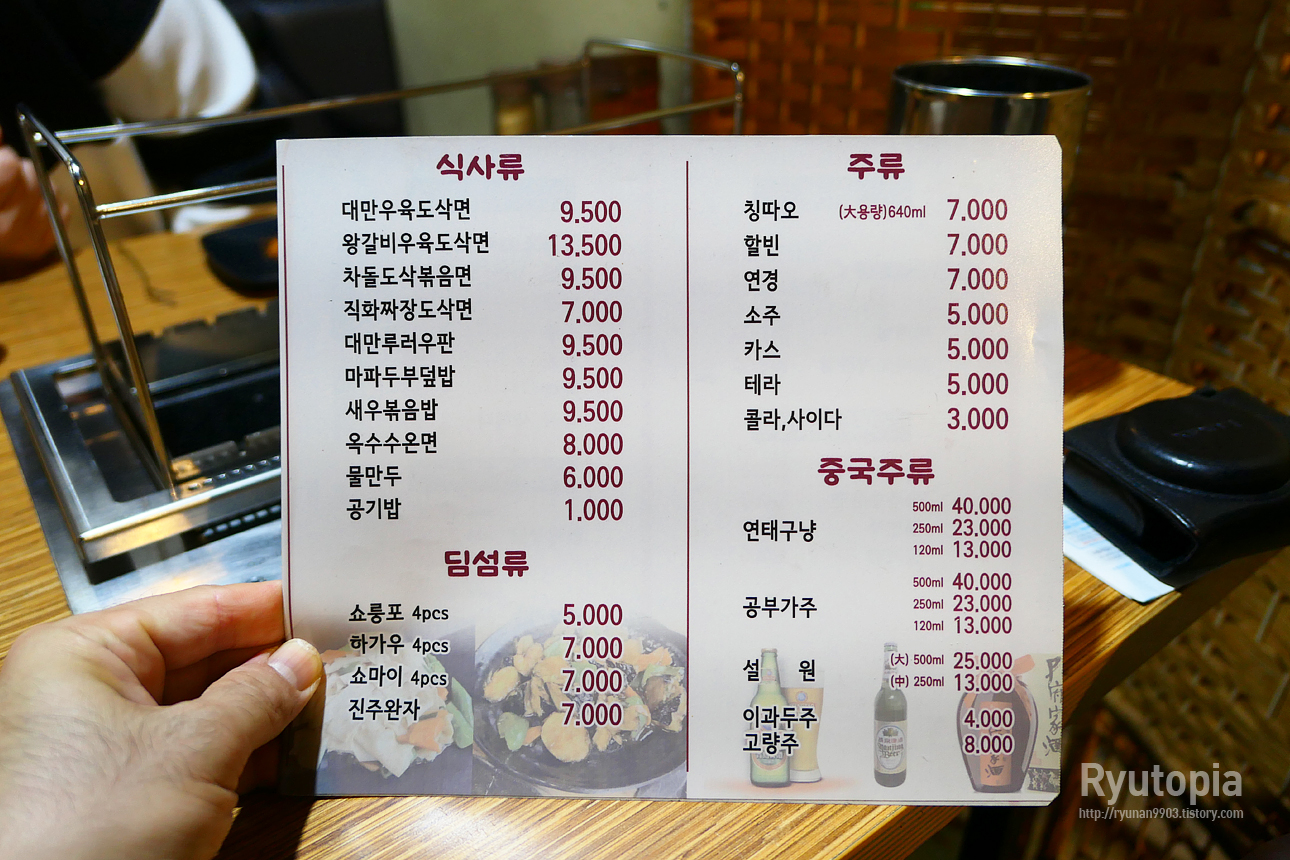 식사류
대만우육도삭면 9.500
왕갈비우육도삭면 13.500
차돌도삭볶음면 9.500
직화짜장도삭면 7.000
대만루러우판 9.500
마파두부덮밥 9.500
새우볶음밥 9.500
옥수수온면 8.000
물만두 6.000
공기밥 1.000
딤섬류
쇼룽포 4pcs 5.000
하가우 4pcs 7.000
쇼마이 4pcs 7.000
진주완자 7.000
주류
칭따오 (大용량)640ml 7.000
할빈 7.000
연경 7.000
소주 5.000
카스 5.000
테라 5.000
콜라,사이다 3.000
중국주류
500ml 40.000
연태구냥 250ml 23.000
120ml 13.000
500ml 40.000
공부가주 250ml 23.000
120ml 13.000
설 원 (大) 500ml 25.000
(中) 250ml 13.000
이과두주 4.000
고량주 8.000
Ryutopia
http://ryunan9903.tistory.com